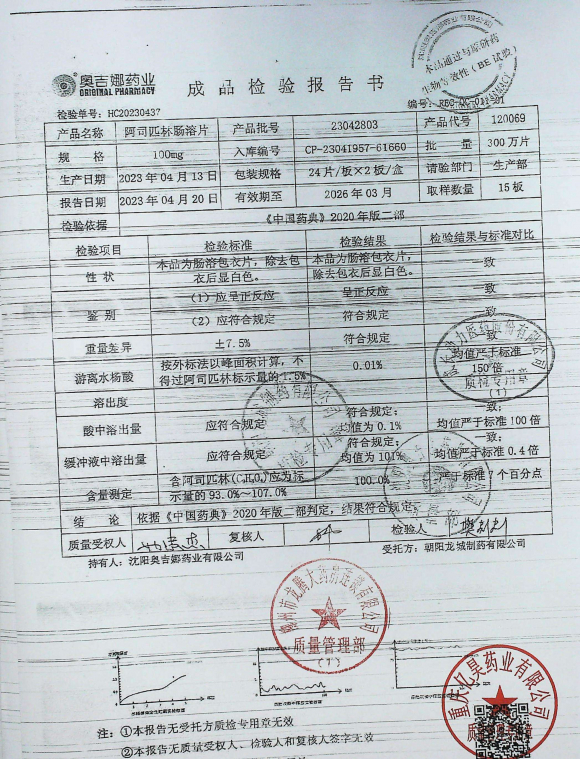 奥吉娜药业
ORIGINAL PHARMACY
成品检验报告书
本品通过与原研药
生物等效性（BE试验）
检验单号：HC20230437
编号：REC-QC-011-01
产品名称 阿司匹林肠溶片 产品批号 23042803 产品代号 120069
规格 100mg 入库编号 CP-23041957-61660 批量 300万片
生产日期 2023年04月13日 包装规格 24片/板×2板/盒 请验部门 生产部
报告日期 2023年04月20日 有效期至 2026年03月 取样数量 15板
检验依据 《中国药典》2020年版二部
检验项目 检验标准 检验结果 检验结果与标准对比
性状 本品为肠溶包衣片，除去包衣后显白色。 本品为肠溶包衣片，除去包衣后显白色。 一致
鉴别 （1）应呈正反应 呈正反应 一致
（2）应符合规定 符合规定 一致
重量差异 ±7.5% 符合规定 一致
游离水杨酸 按外标法以峰面积计算，不得过阿司匹林标示量的1.5% 0.01% 均值严于标准150倍
溶出度
酸中溶出量 应符合规定 符合规定；均值为0.1% 一致；均值严于标准100倍
缓冲液中溶出量 应符合规定 符合规定；均值为101% 一致；均值严于标准0.4倍
含量测定 含阿司匹林(C₉H₈O₄)应为标示量的93.0%~107.0% 100.0% 严于标准7个百分点
结论 依据《中国药典》2020年版二部判定，结果符合规定。
质量受权人 复核人 检验人
持有人：沈阳奥吉娜药业有限公司 受托方：朝阳龙城制药有限公司
质检专用章
（1）
质量管理部
（1）
重庆亿昊药业有限公司
注：①本报告无受托方质检专用章无效
②本报告无质量受权人、检验人和复核人签字无效